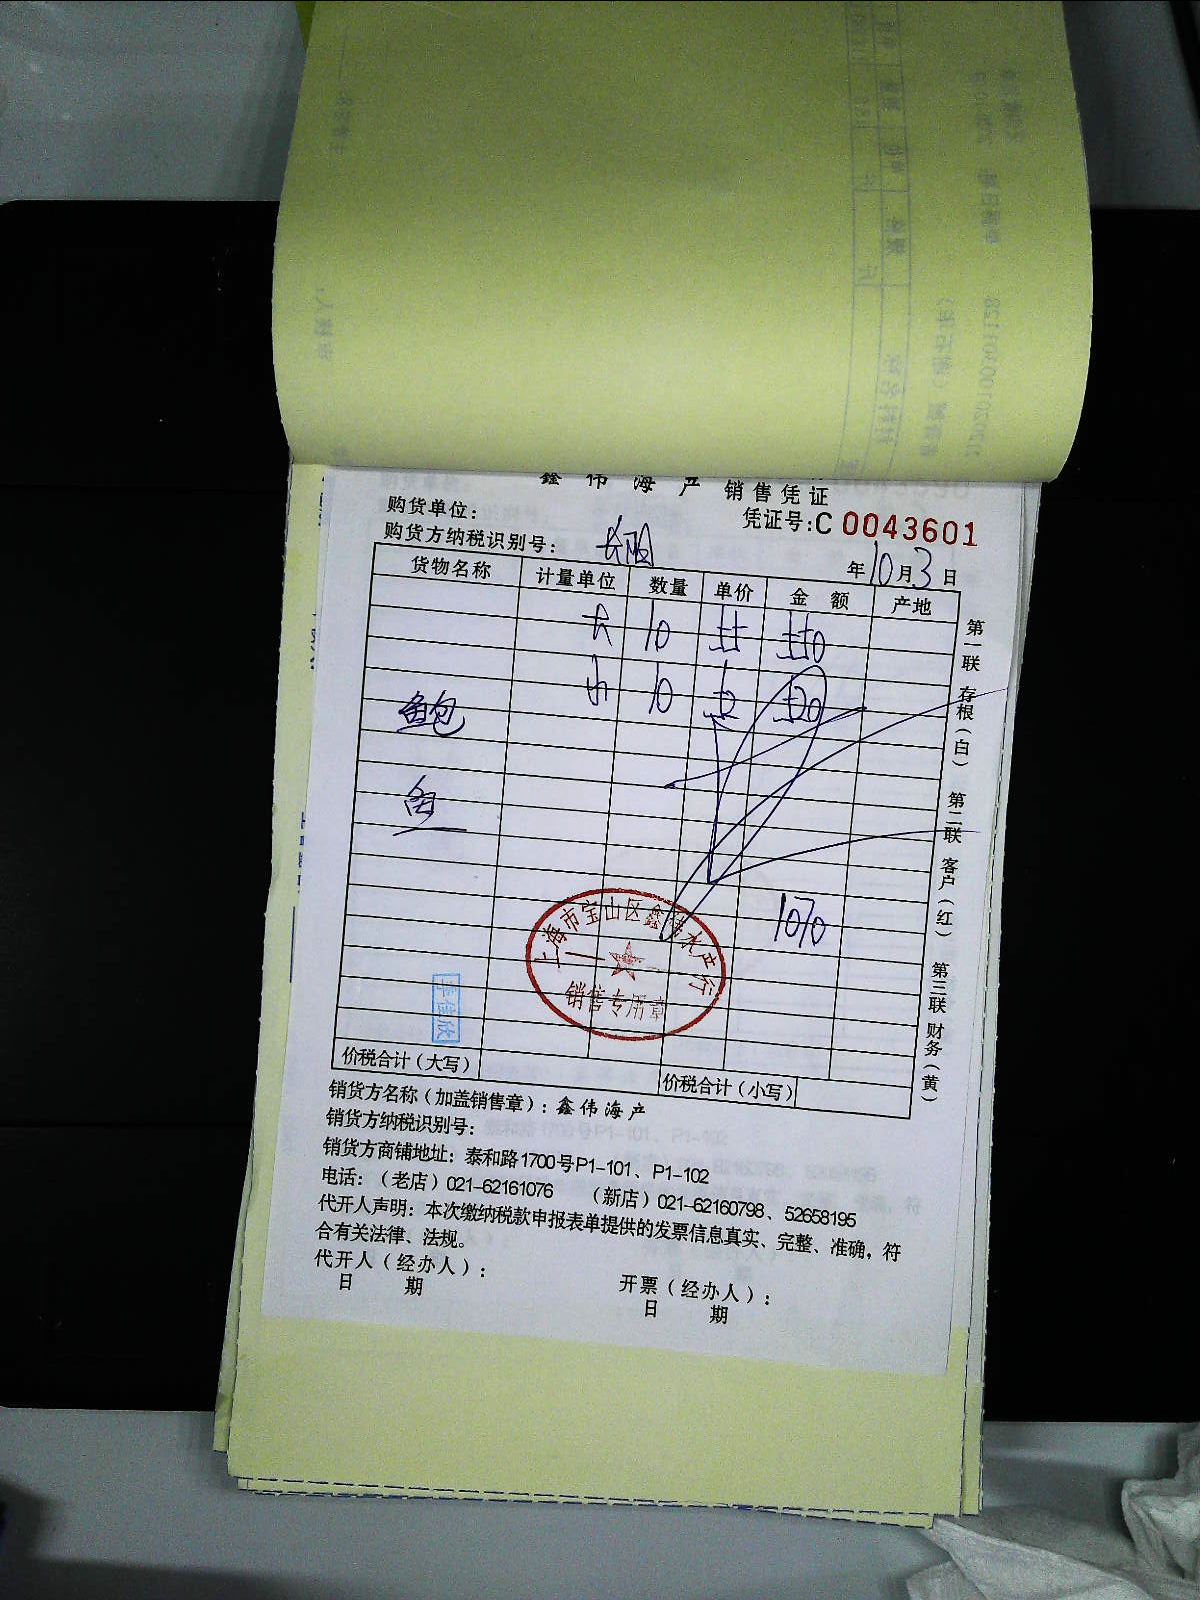 鑫伟海产 销售凭证
购货单位：
凭证号：C 0043601
购货方纳税识别号： 长阳
年10月3日
货物名称 计量单位 数量 单价 金额 产地
大 10
小 10
鲍
鱼
1070
上海市宝山区鑫伟水产行
销售专用章
李佳欣
价税合计（大写） 价税合计（小写）
第一联 存根（白） 第二联 客户（红） 第三联 财务（黄）
销货方名称（加盖销售章）：鑫伟海产
销货方纳税识别号：
销货方商铺地址：泰和路1700号P1-101、P1-102
电话：（老店）021-62161076 （新店）021-62160798、52658195
代开人声明：本次缴纳税款申报表单提供的发票信息真实、完整、准确，符
合有关法律、法规。
代开人（经办人）： 开票（经办人）：
日 期 日 期